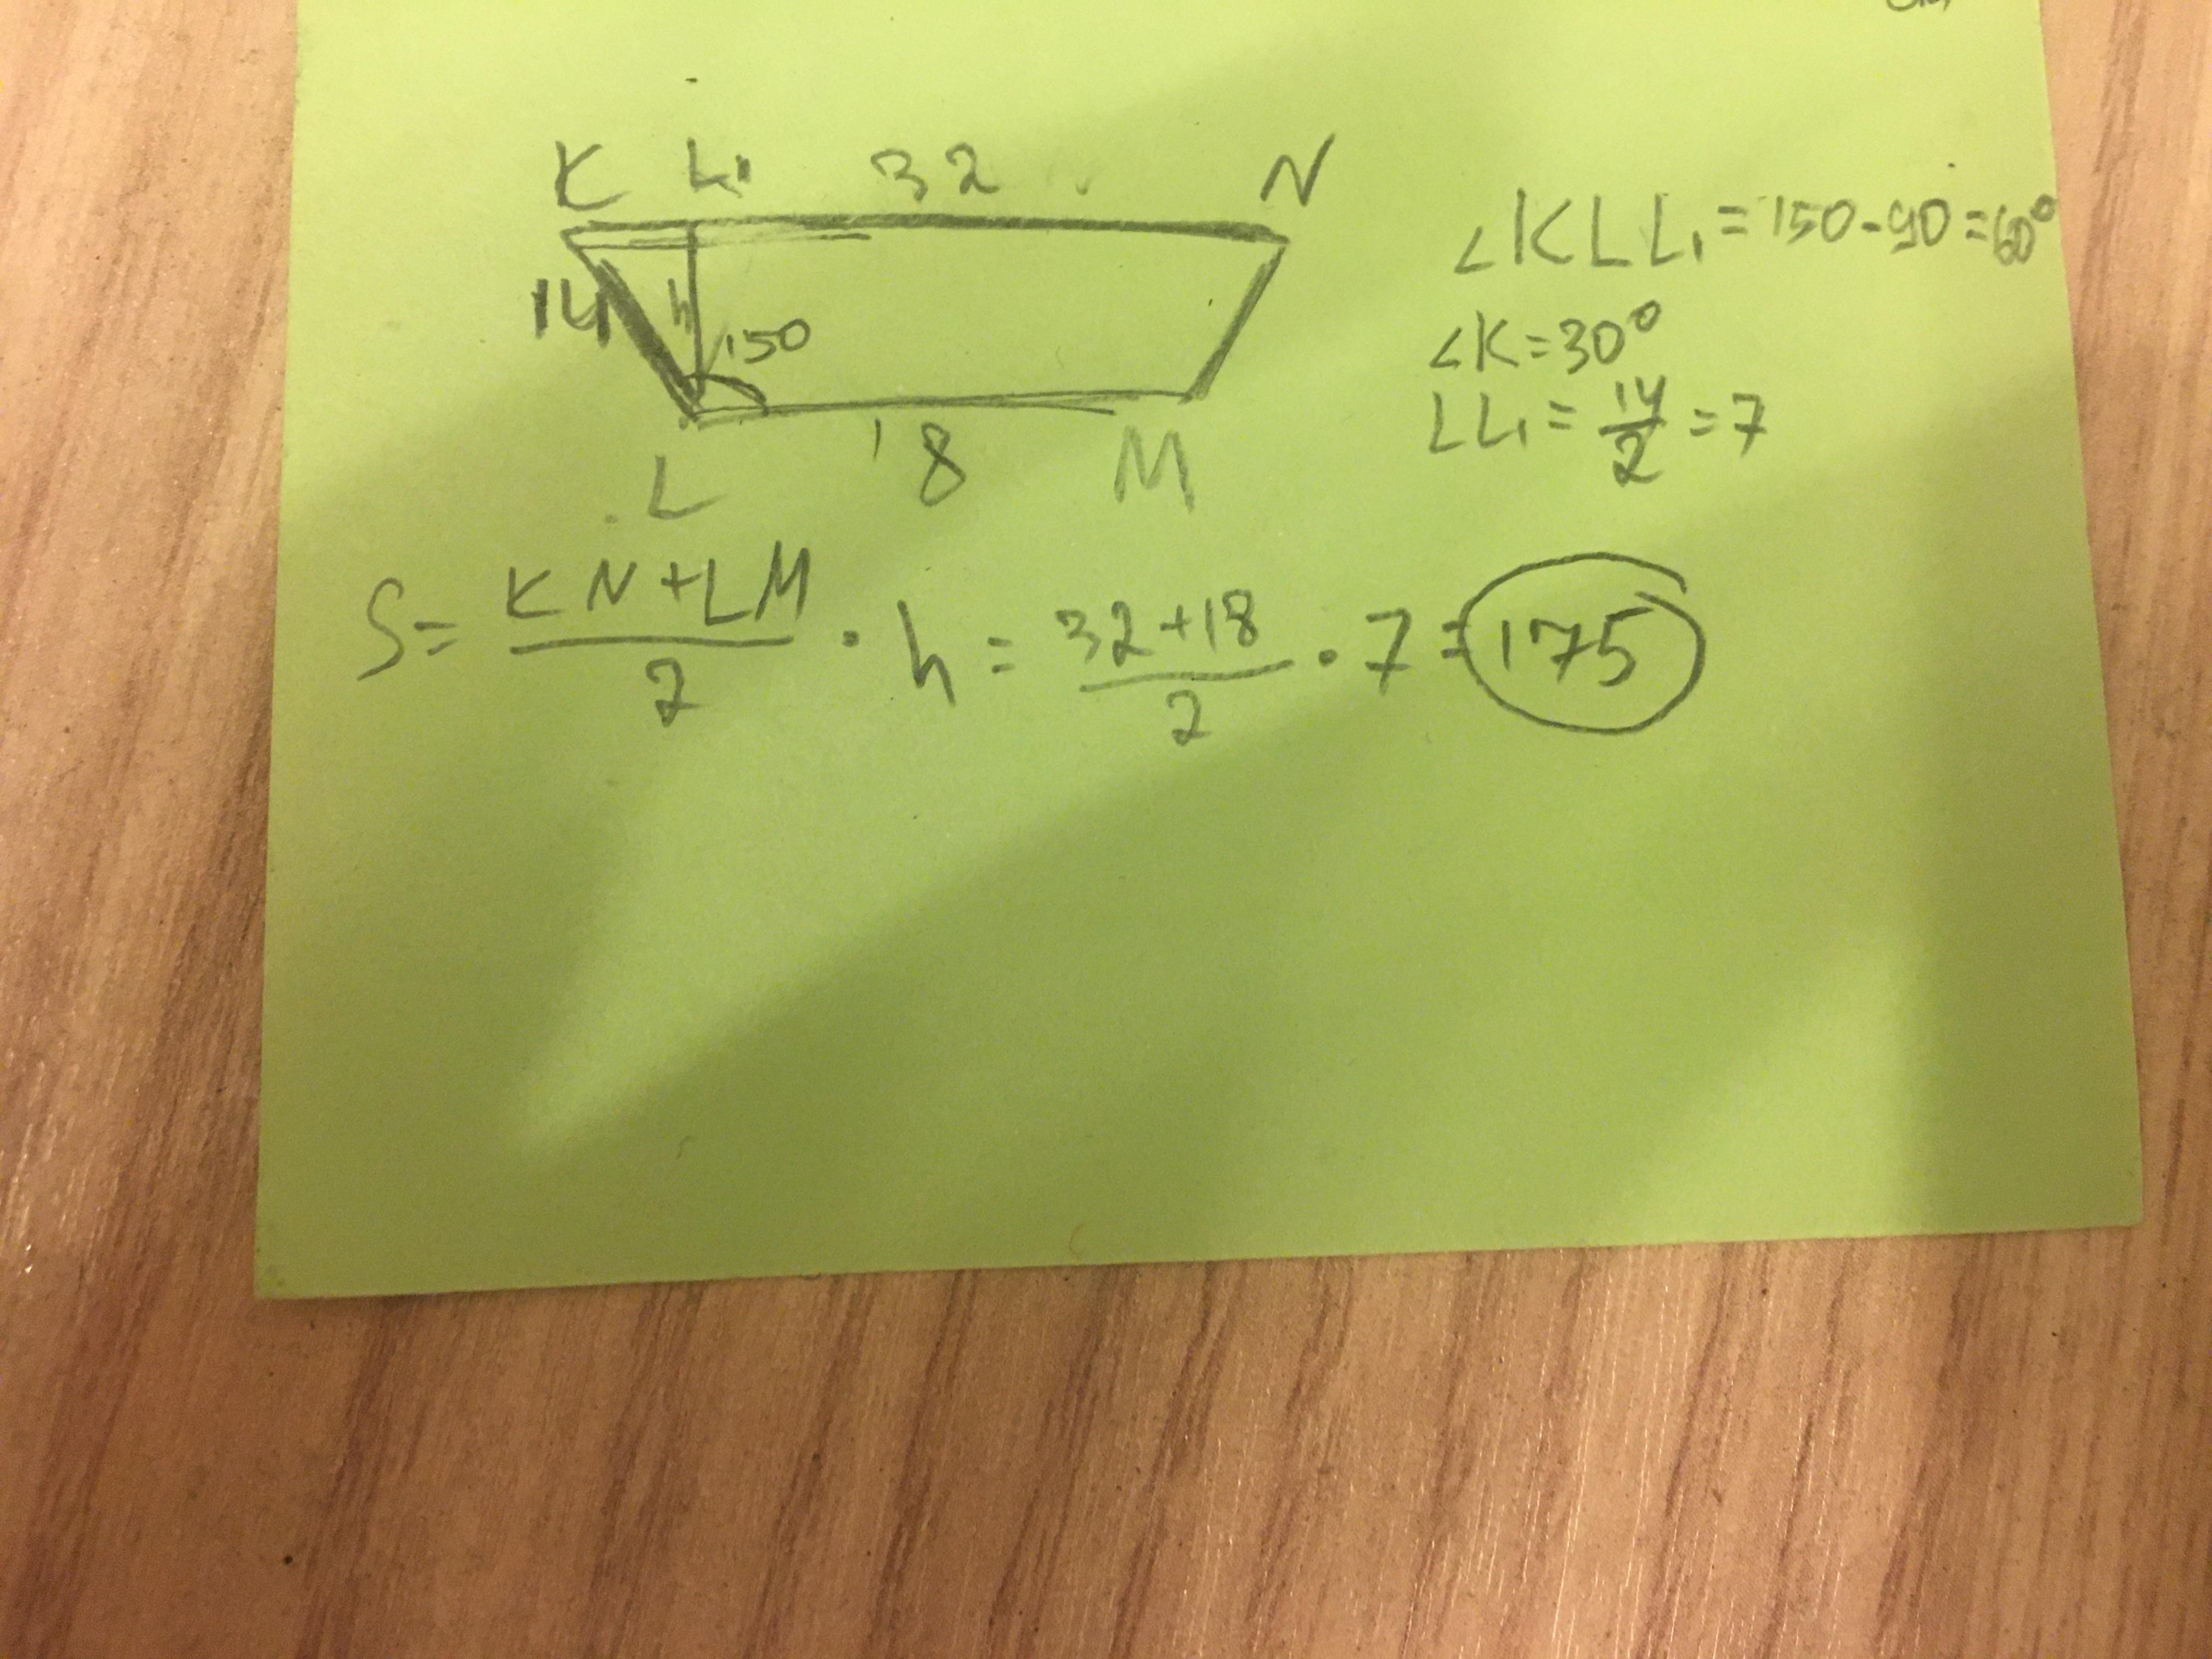 K L₁ 32 N
14 h 150
L 18 M
∠KLL₁=150-90=60°
∠K=30°
LL₁=14/2=7
S=KN+LM/2·h=32+18/2·7=175